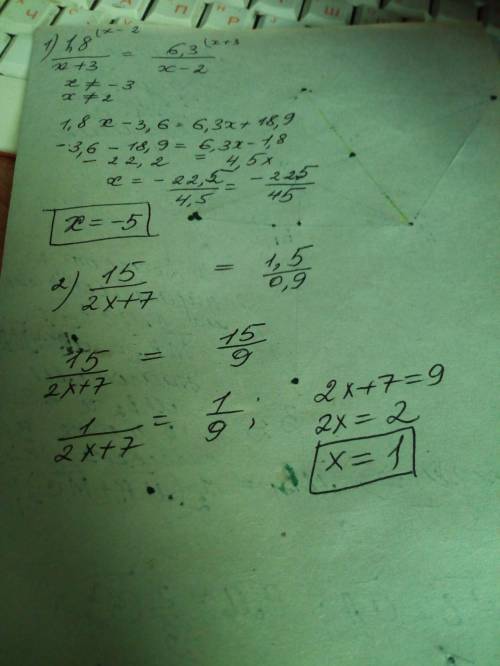 1) 1,8 (x-2 / x+3 = 6,3 (x+3 / x-2
x ≠ -3
x ≠ 2
1,8 x - 3,6 = 6,3x + 18,9
-3,6 - 18,9 = 6,3x - 1,8
- 22,2 = 4,5x
x = - 22,5/4,5 = - 225/45
x = -5
2) 15/2x+7 = 1,5/0,9
15/2x+7 = 15/9
1/2x+7 = 1/9 ;
2x+7=9
2x = 2
x = 1